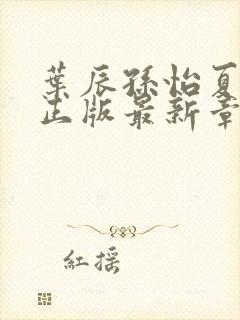 葉辰孫怡夏
正版最新章
紅搖